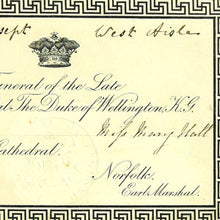 West Aisle
Funeral of the Late
The Duke of Wellington, K.G.
Miss Mary Hall
Cathedral.
Norfolk,
Earl Marshal.